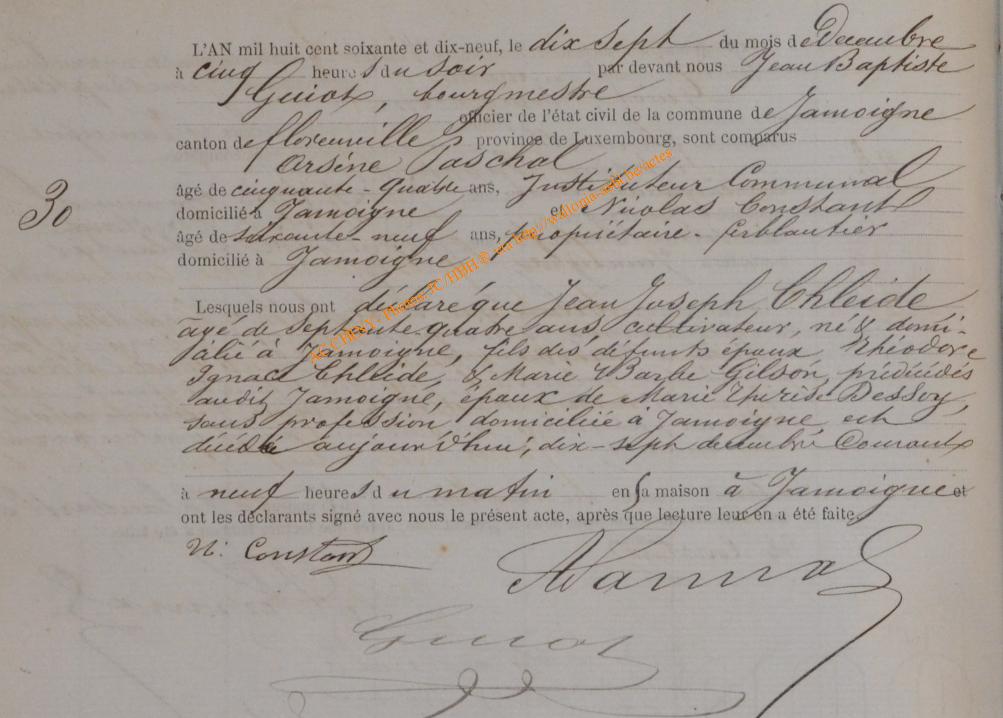 L'AN mil huit cent soixante et dix-neuf, le dix sept du mois de Decembre
à cinq heures du soir par devant nous Jean Baptiste
Guiot, bourgmestre
officier de l'état civil de la commune de Jamoigne
canton de florenville province de Luxembourg, sont comparus
Arsène Paschal
âgé de cinquante-quatre ans, Instituteur Communal
30
domicilié à Jamoigne et Nicolas Constant
âgé de soixante-neuf ans, propriétaire-ferblantier
domicilié à Jamoigne
Lesquels nous ont déclaré que Jean Joseph Chleide
âgé de septante-quatre ans cultivateur, né & domi-
cilié à Jamoigne, fils des défunts époux Théodore
Ignace Chleide, & Marie Barbe Gilson, prédécédés
audit Jamoigne, époux de Marie Thérèse Dessoy,
sans profession domiciliée à Jamoigne, est
décédé aujourd'hui, dix-sept decembre Courant
à neuf heures du matin en sa maison à Jamoigne et
ont les déclarants signé avec nous le présent acte, après que lecture leur en a été faite.
N. Constant
Guiot